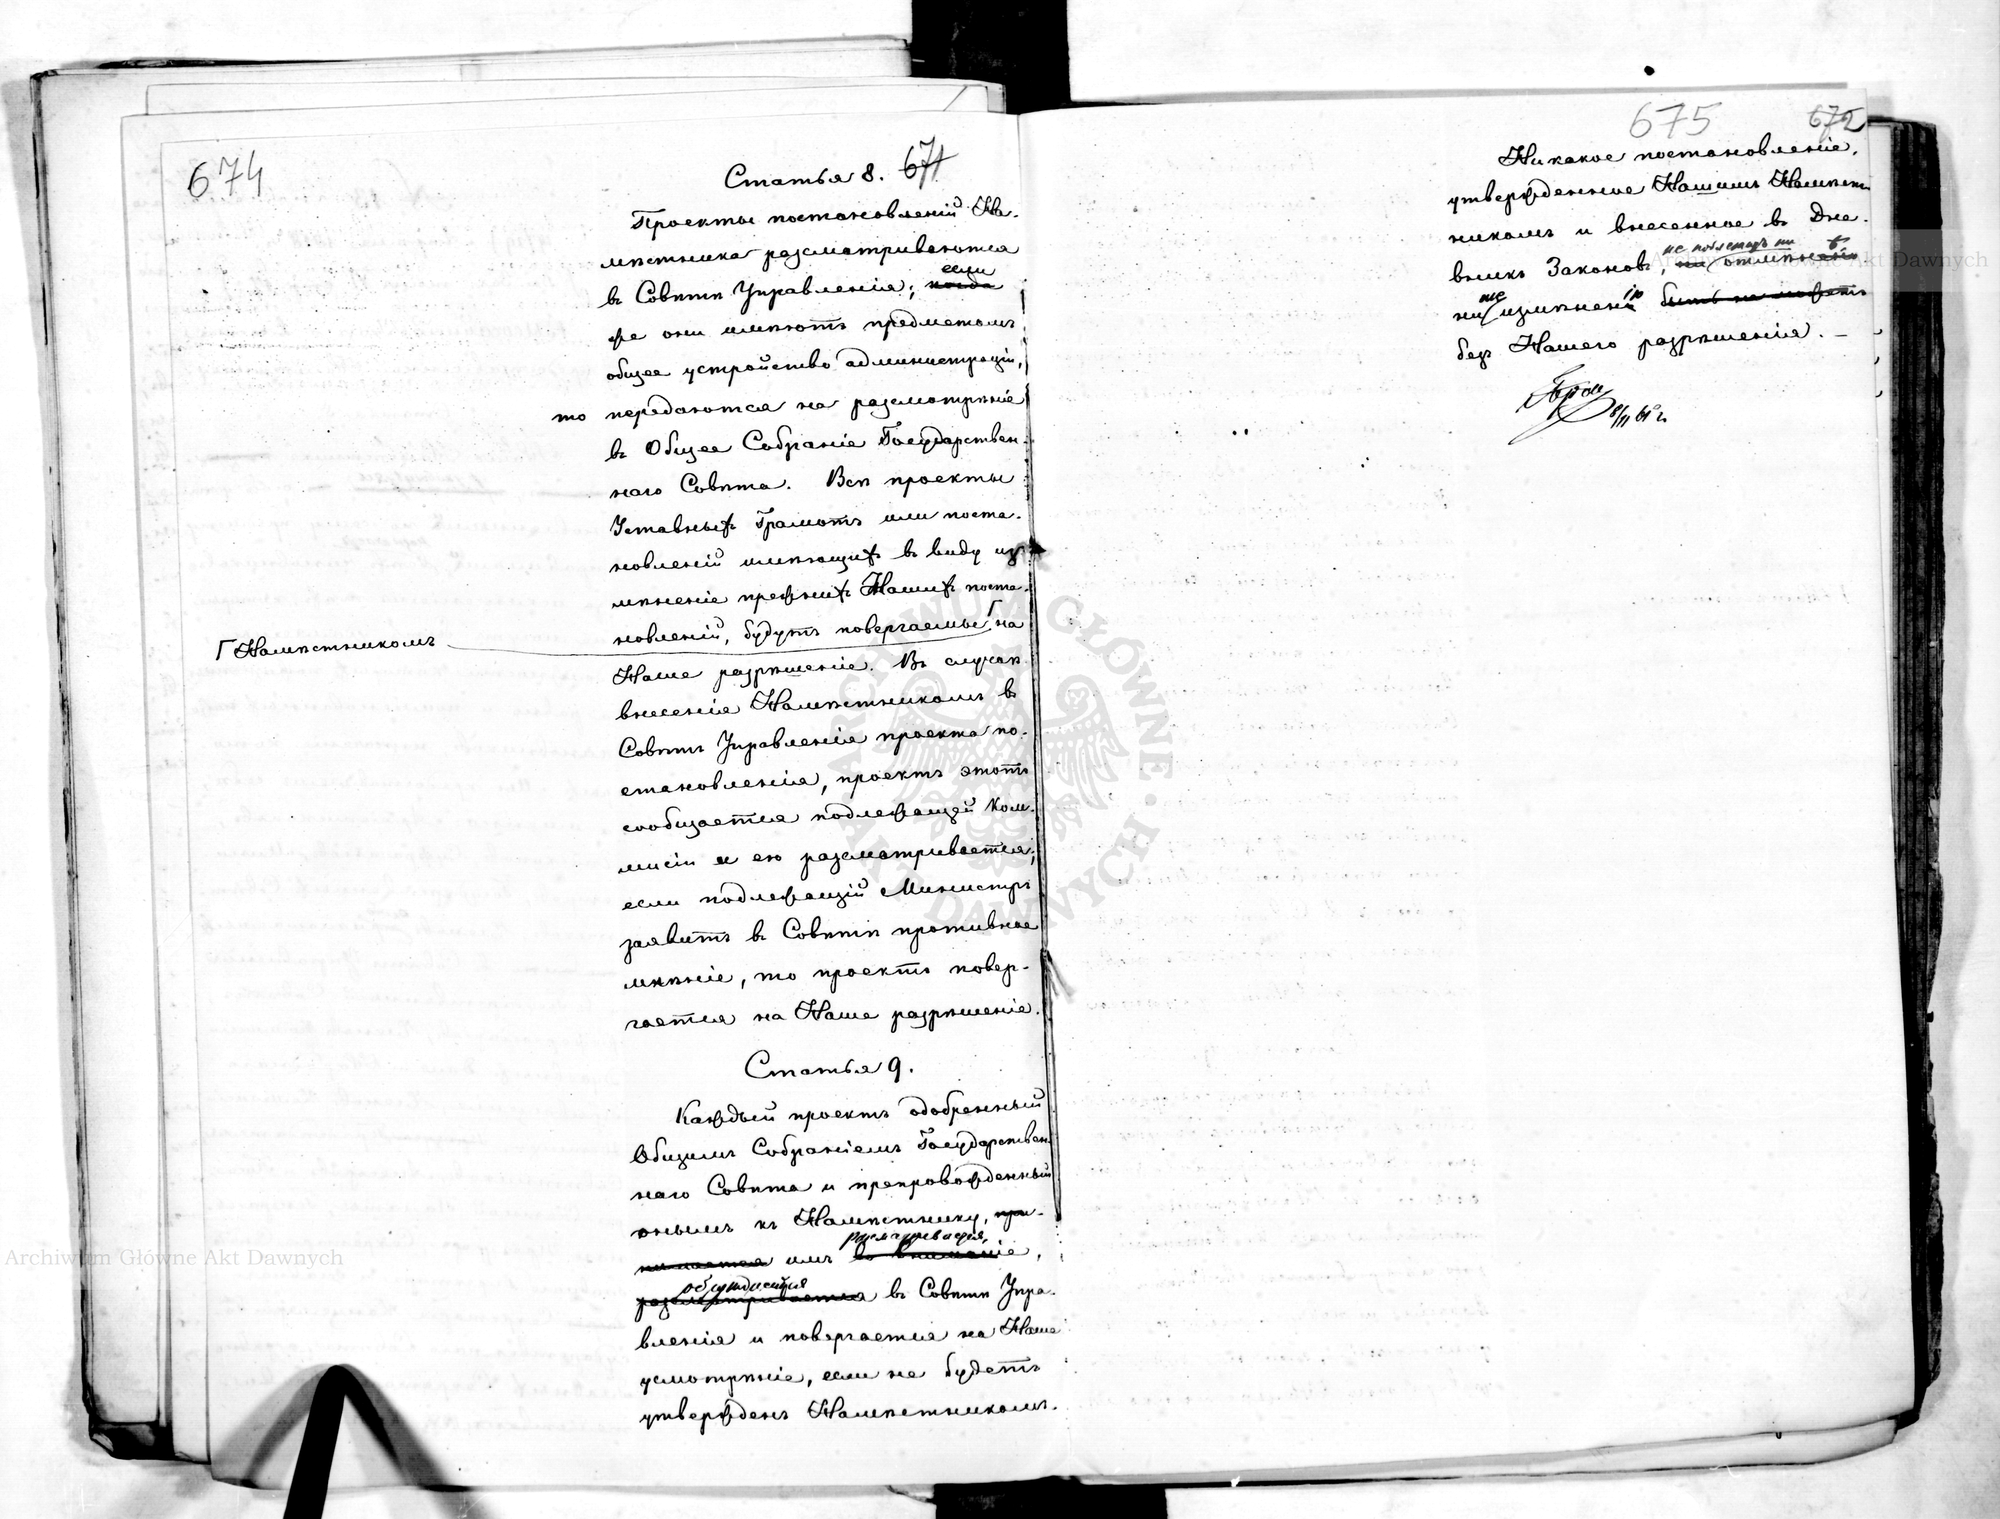 674
671
Статья 8.
Проекты постановленій На-
мѣстника разсматриваются
если
въ Совѣтѣ Управленія; когда
же они имѣютъ предметомъ
общее устройство администраціи,
то передаются на разсмотрѣніе
въ Общее Собраніе Государствен-
наго Совѣта. Всѣ проекты
Уставныхъ Грамотъ или поста-
новленій имѣющихъ въ виду из-
мѣненіе прежнихъ Нашихъ поста-
новленій, будутъ повергаемы Г на
Г Намѣстникомъ
Наше разрѣшеніе. Въ случаѣ
внесенія Намѣстникомъ въ
Совѣтъ Управленія проекта по-
становленія, проектъ этотъ
сообщается подлежащей Ком-
мисіи и ею разсматривается;
если подлежащій Министръ
заявитъ въ Совѣтѣ противное
мнѣніе, то проектъ повер-
гается на Наше разрѣшеніе.
Статья 9.
Каждый проектъ одобренный
Общимъ Собраніемъ Государствен-
наго Совѣта и препровожденный
онымъ къ Намѣстнику, при-
разсматривается,
нимается имъ во вниманіе,
обсуждается
разсматривается въ Совѣтѣ Упра-
вленія и повергается на Наше
усмотрѣніе, если не будетъ
утвержденъ Намѣстникомъ.
675
672
Никакое постановленіе,
утвержденное Нашимъ Намѣст-
никомъ и внесенное въ Дне-
не подлежитъ ни
вникъ Законовъ, ни отмѣнѣ
ни измѣненію быть не можетъ
безъ Нашего разрѣшенія. —
Archiwum Główne Akt Dawnych
Archiwum Główne Akt Dawnych
ARCHIWUM GŁÓWNE AKT DAWNYCH